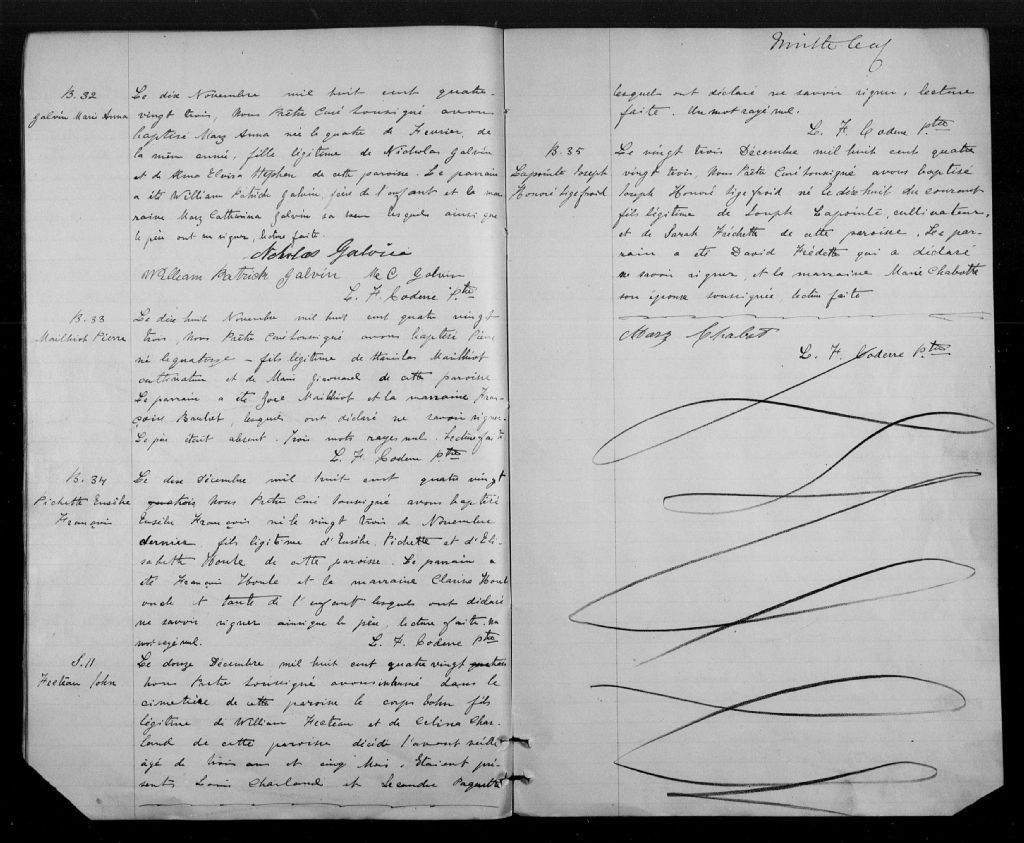 B. 32
Galvin Marie Anna
Le dix Novembre mil huit cent quatre-
vingt trois, Nous Prêtre Curé soussigné avons
baptisé Mary Anna née le quatre de Fevrier, de
la même année, fille légitime de Nicholas Galvin
et de Elvira Stephen de cette paroisse. Le parrain
a été William Patrick Galvin, frère de l'enfant et la mar
raine Mary Catharina Galvin sa soeur lesquels ainsi que
le père ont su signer, lecture faite.
Nicholas Galvin
William Patrick Galvin M C Galvin
L. H. Coderre Ptre
B. 33
Mailhiot Pierre
Le dix huit Novembre mil huit cent quatre vingt
trois, Nous Prêtre Curé soussigné avons baptisé Pierre
né le quatorze fils légitime de Stanislas Mailhiot
cultivateur et de Marie de cette paroisse
Le parrain a été Joel Mailhiot et la marraine Fran-
çoise lesquels ont déclaré ne savoir signer.
Le père était absent. Trois mots rayés nul. Lecture faite
L. H. Coderre Ptre
B. 34
Pichette Eusèbe
François
Le deux Décembre mil huit cent quatre vingt
Nous Prêtre Curé soussigné avons baptisé
Eusèbe François né le vingt trois de Novembre
dernier, fils légitime d'Eusèbe Pichette et d'Eli-
sabeth Houle de cette paroisse. Le parrain a
été François Houle et la marraine Clarisse Houle
oncle et tante de l'enfant lesquels ont déclaré
ne savoir signer ainsi que le père, lecture faite. Un
mot rayé nul. L. H. Coderre Ptre
S. 11
Fecteau John
Le douze Décembre mil huit cent quatre vingt
Nous Prêtre soussigné avons inhumé dans le
cimetière de cette paroisse le corps John fils
légitime de William Fecteau et de Celina Char-
land de cette paroisse décédé l'avant veille
âgé de trois ans et cinq Mois. Etaient pré-
sents Louis Charland et Paquette
lesquels ont déclaré ne savoir signer, lecture
faite. Un mot rayé nul.
L. H. Coderre Ptre
B. 35
Lapointe Joseph
Honoré Sigefroid
Le vingt trois Décembre mil huit cent quatre
vingt trois, Nous Prêtre Curé soussigné avons baptisé
Joseph Honoré Sigefroid né le dix huit du courant
fils légitime de Joseph Lapointe, cultivateur,
et de Sarah Fréchette de cette paroisse. Le par-
rain a été David Frédette qui a déclaré
ne savoir signer, et la marraine Marie Chabotte
son épouse soussignée lecture faite
Mary Chabot
L. H. Coderre Ptre